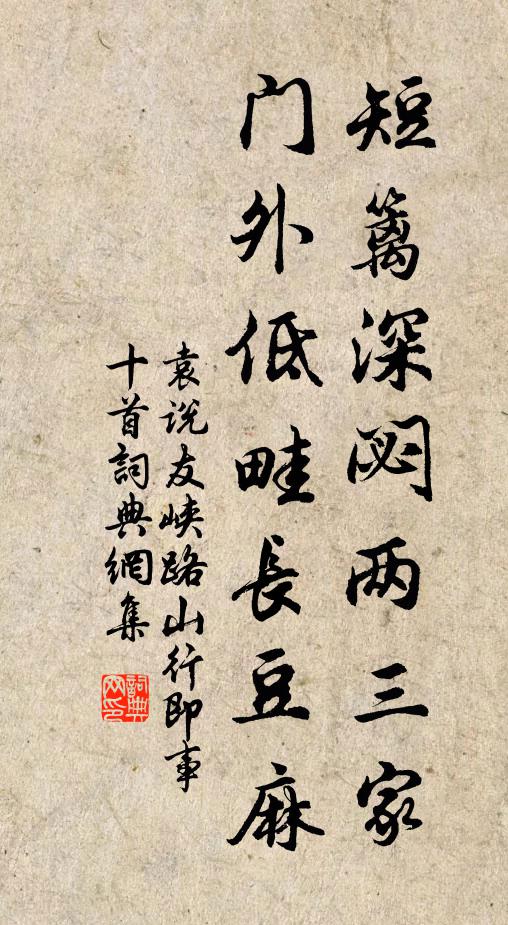 短篱深閟两三家
门外低畦長豆麻
袁说友峡路山行即事
十首詞典網集
詞典
网印